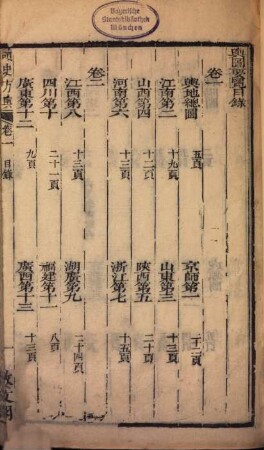 Bayerische
Staatsbibliothek
München
輿圖要覽目錄
卷一
輿地總圖 五頁 京師第一 二十二頁
江南第二 十九頁 山東第三 十三頁
山西第四 十三頁 陝西第五 二十頁
河南第六 十三頁 浙江第七 十五頁
卷二
江西第八 十三頁 湖廣第九 二十四頁
四川第十 二十一頁 福建第十一 十三頁
廣東第十二 九頁 廣西第十三 十三頁
方輿 卷一 目錄 一 敷文閣